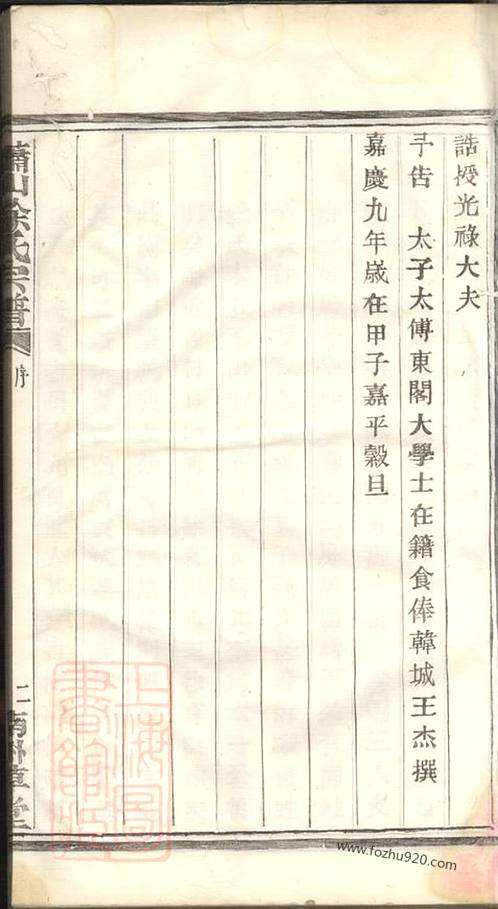 誥授光祿大夫
予告　太子太傅東閣大學士在籍食俸韓城王杰撰
嘉慶九年歲在甲子嘉平穀旦
蕭山徐氏宗譜
序
二
南州草堂
上海圖書館藏
www.fozhu920.com